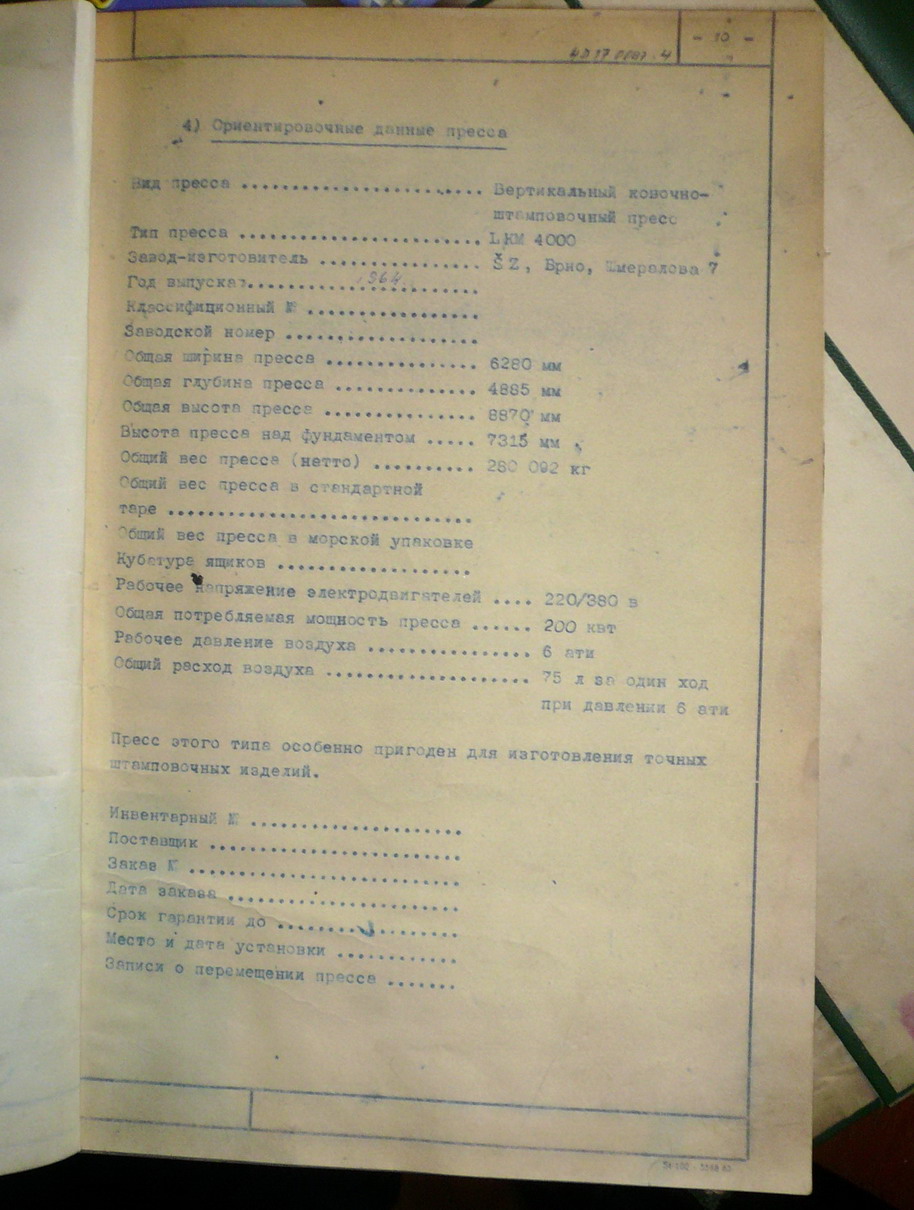 - 10 -
4) Ориентировочные данные пресса
Вид пресса ............................ Вертикальный ковочно-
штамповочный пресс
Тип пресса ............................ LKM 4000
Завод-изготовитель ................... ŠZ, Брно, Шмералова 7
Год выпуска ........................... 1964
Классифиционный № ....................
Заводской номер .......................
Общая ширина пресса .................. 6280 мм
Общая глубина пресса ................ 4885 мм
Общая высота пресса .................. 8870 мм
Высота пресса над фундаментом ..... 7315 мм
Общий вес пресса (нетто) .......... 280 092 кг
Общий вес пресса в стандартной
таре ...................................
Общий вес пресса в морской упаковке
Кубатура ящиков ......................
Рабочее напряжение электродвигателей .... 220/380 в
Общая потребляемая мощность пресса ...... 200 квт
Рабочее давление воздуха ................... 6 ати
Общий расход воздуха ........................ 75 л за один ход
при давлении 6 ати
Пресс этого типа особенно пригоден для изготовления точных
штамповочных изделий.
Инвентарный № .........................
Поставщик .............................
Заказ № ................................
Дата заказа ...........................
Срок гарантии до .....................
Место и дата установки ..............
Записи о перемещении пресса ........